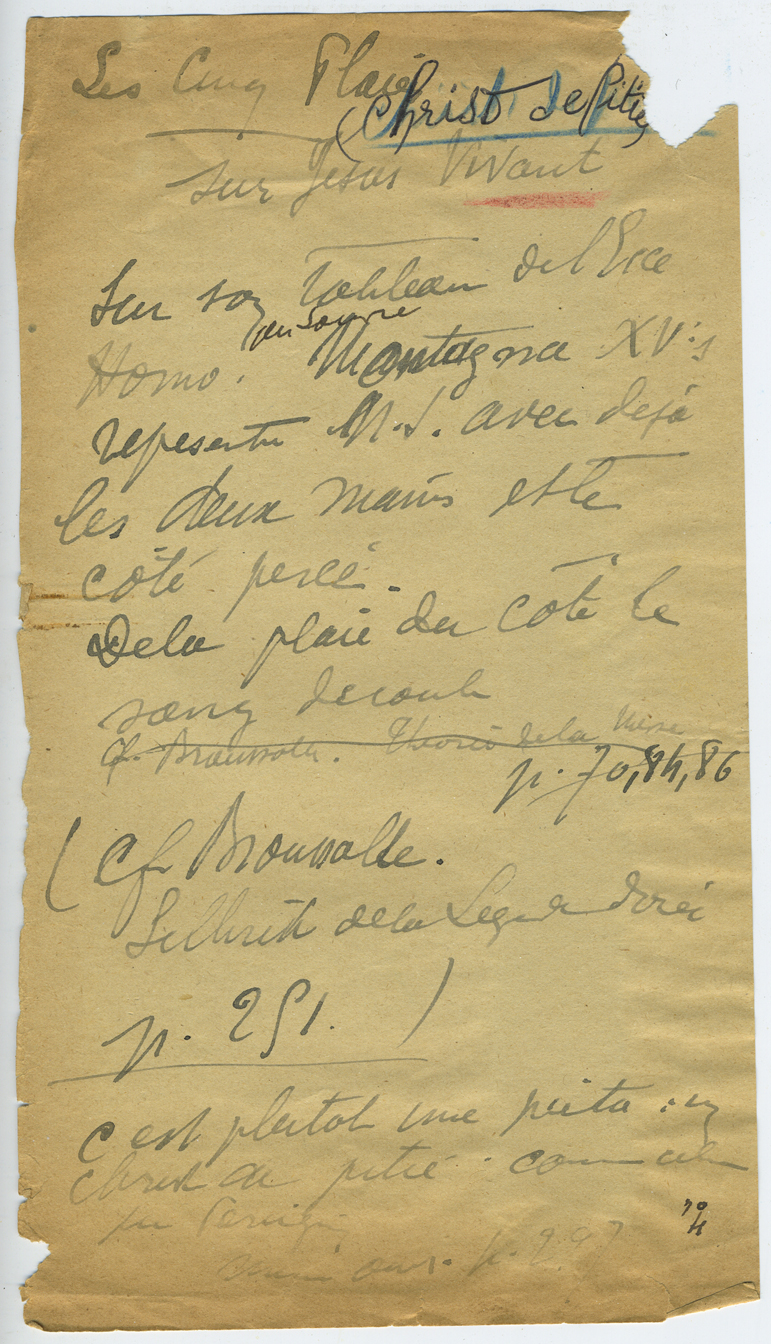 Les Cinq Plaies
(Christ de Pitié)
sur Jésus Vivant
Sur son tableau de l'Ecce
Homo. Montagna XVe s
au Louvre
représente N.S. avec déjà
les deux mains et le
côté percé.
De la plaie du côté le
sang découle
cf. Broussolle. Théorie de la Messe
p. 70, 84, 86
(Cf Broussolle.
de la Légende dorée
p. 251. )
c'est plutôt une pieta : un
Christ de pitié comme celui
du
p. 297